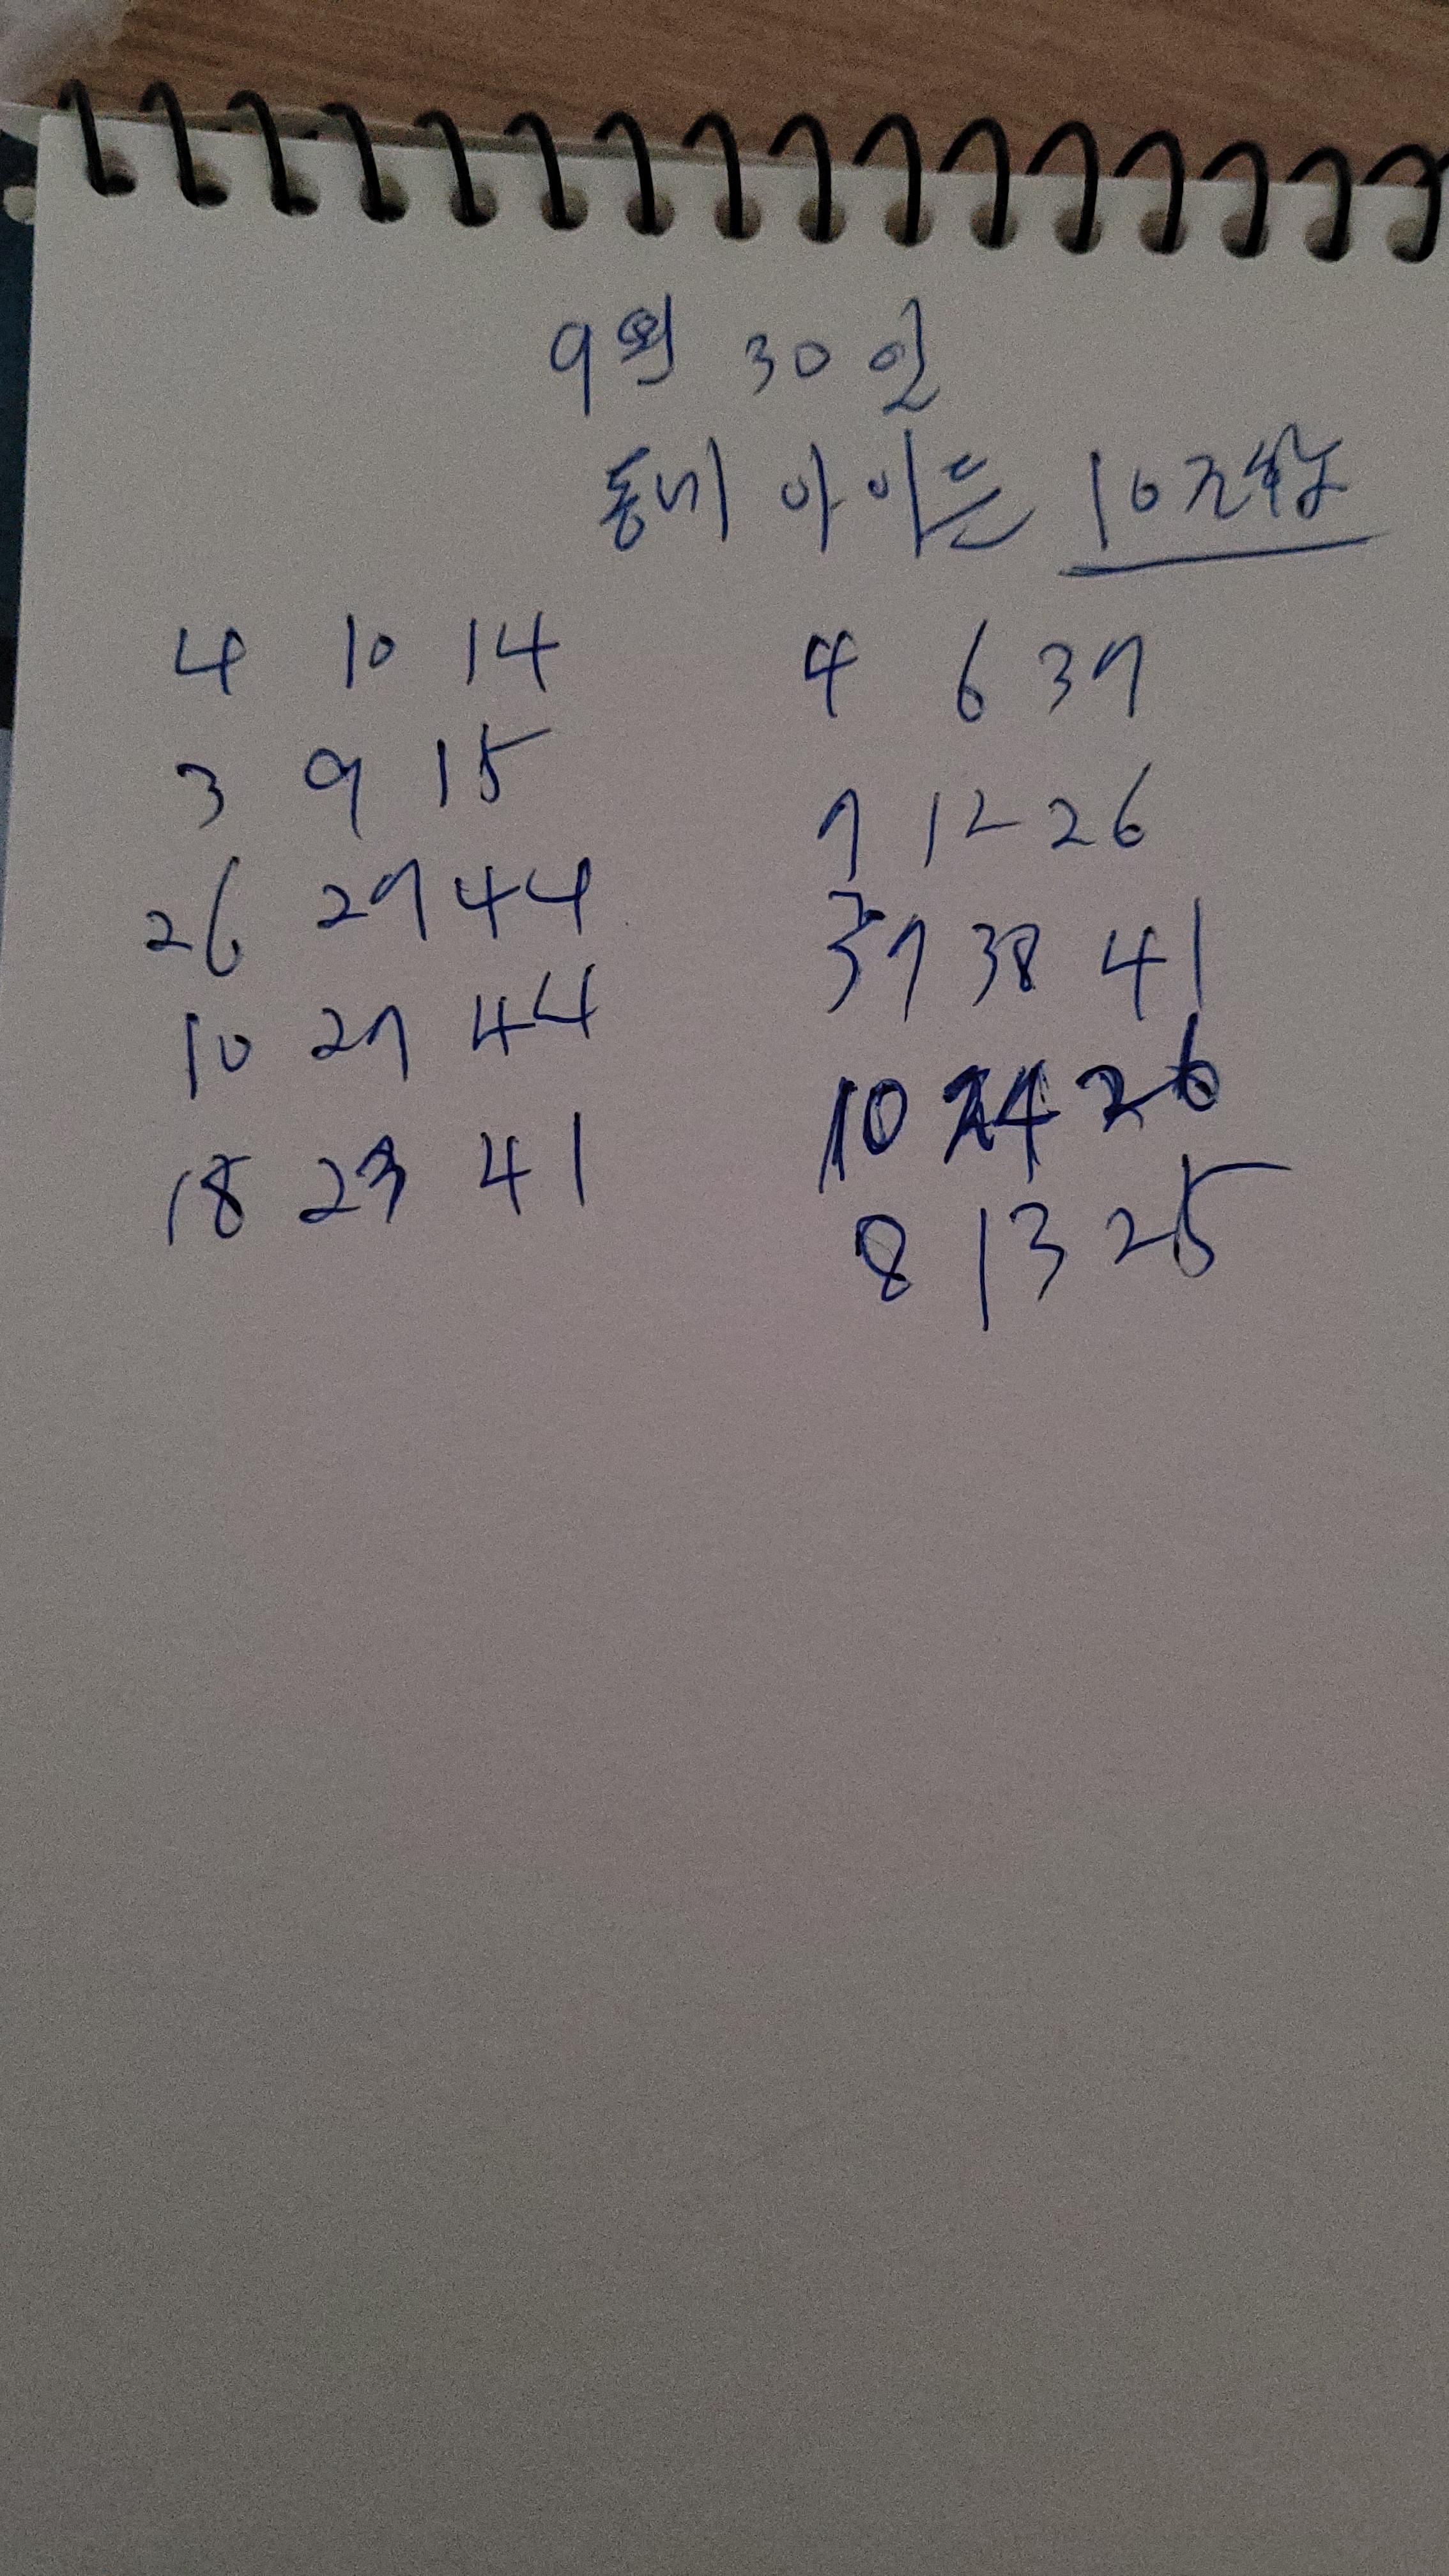 9월 30일
동네 아이든 10조합
4 10 14
3 9 15
26 27 44
10 27 44
18 23 41
4 6 37
7 12 26
37 38 41
10 24 26
8 13 25